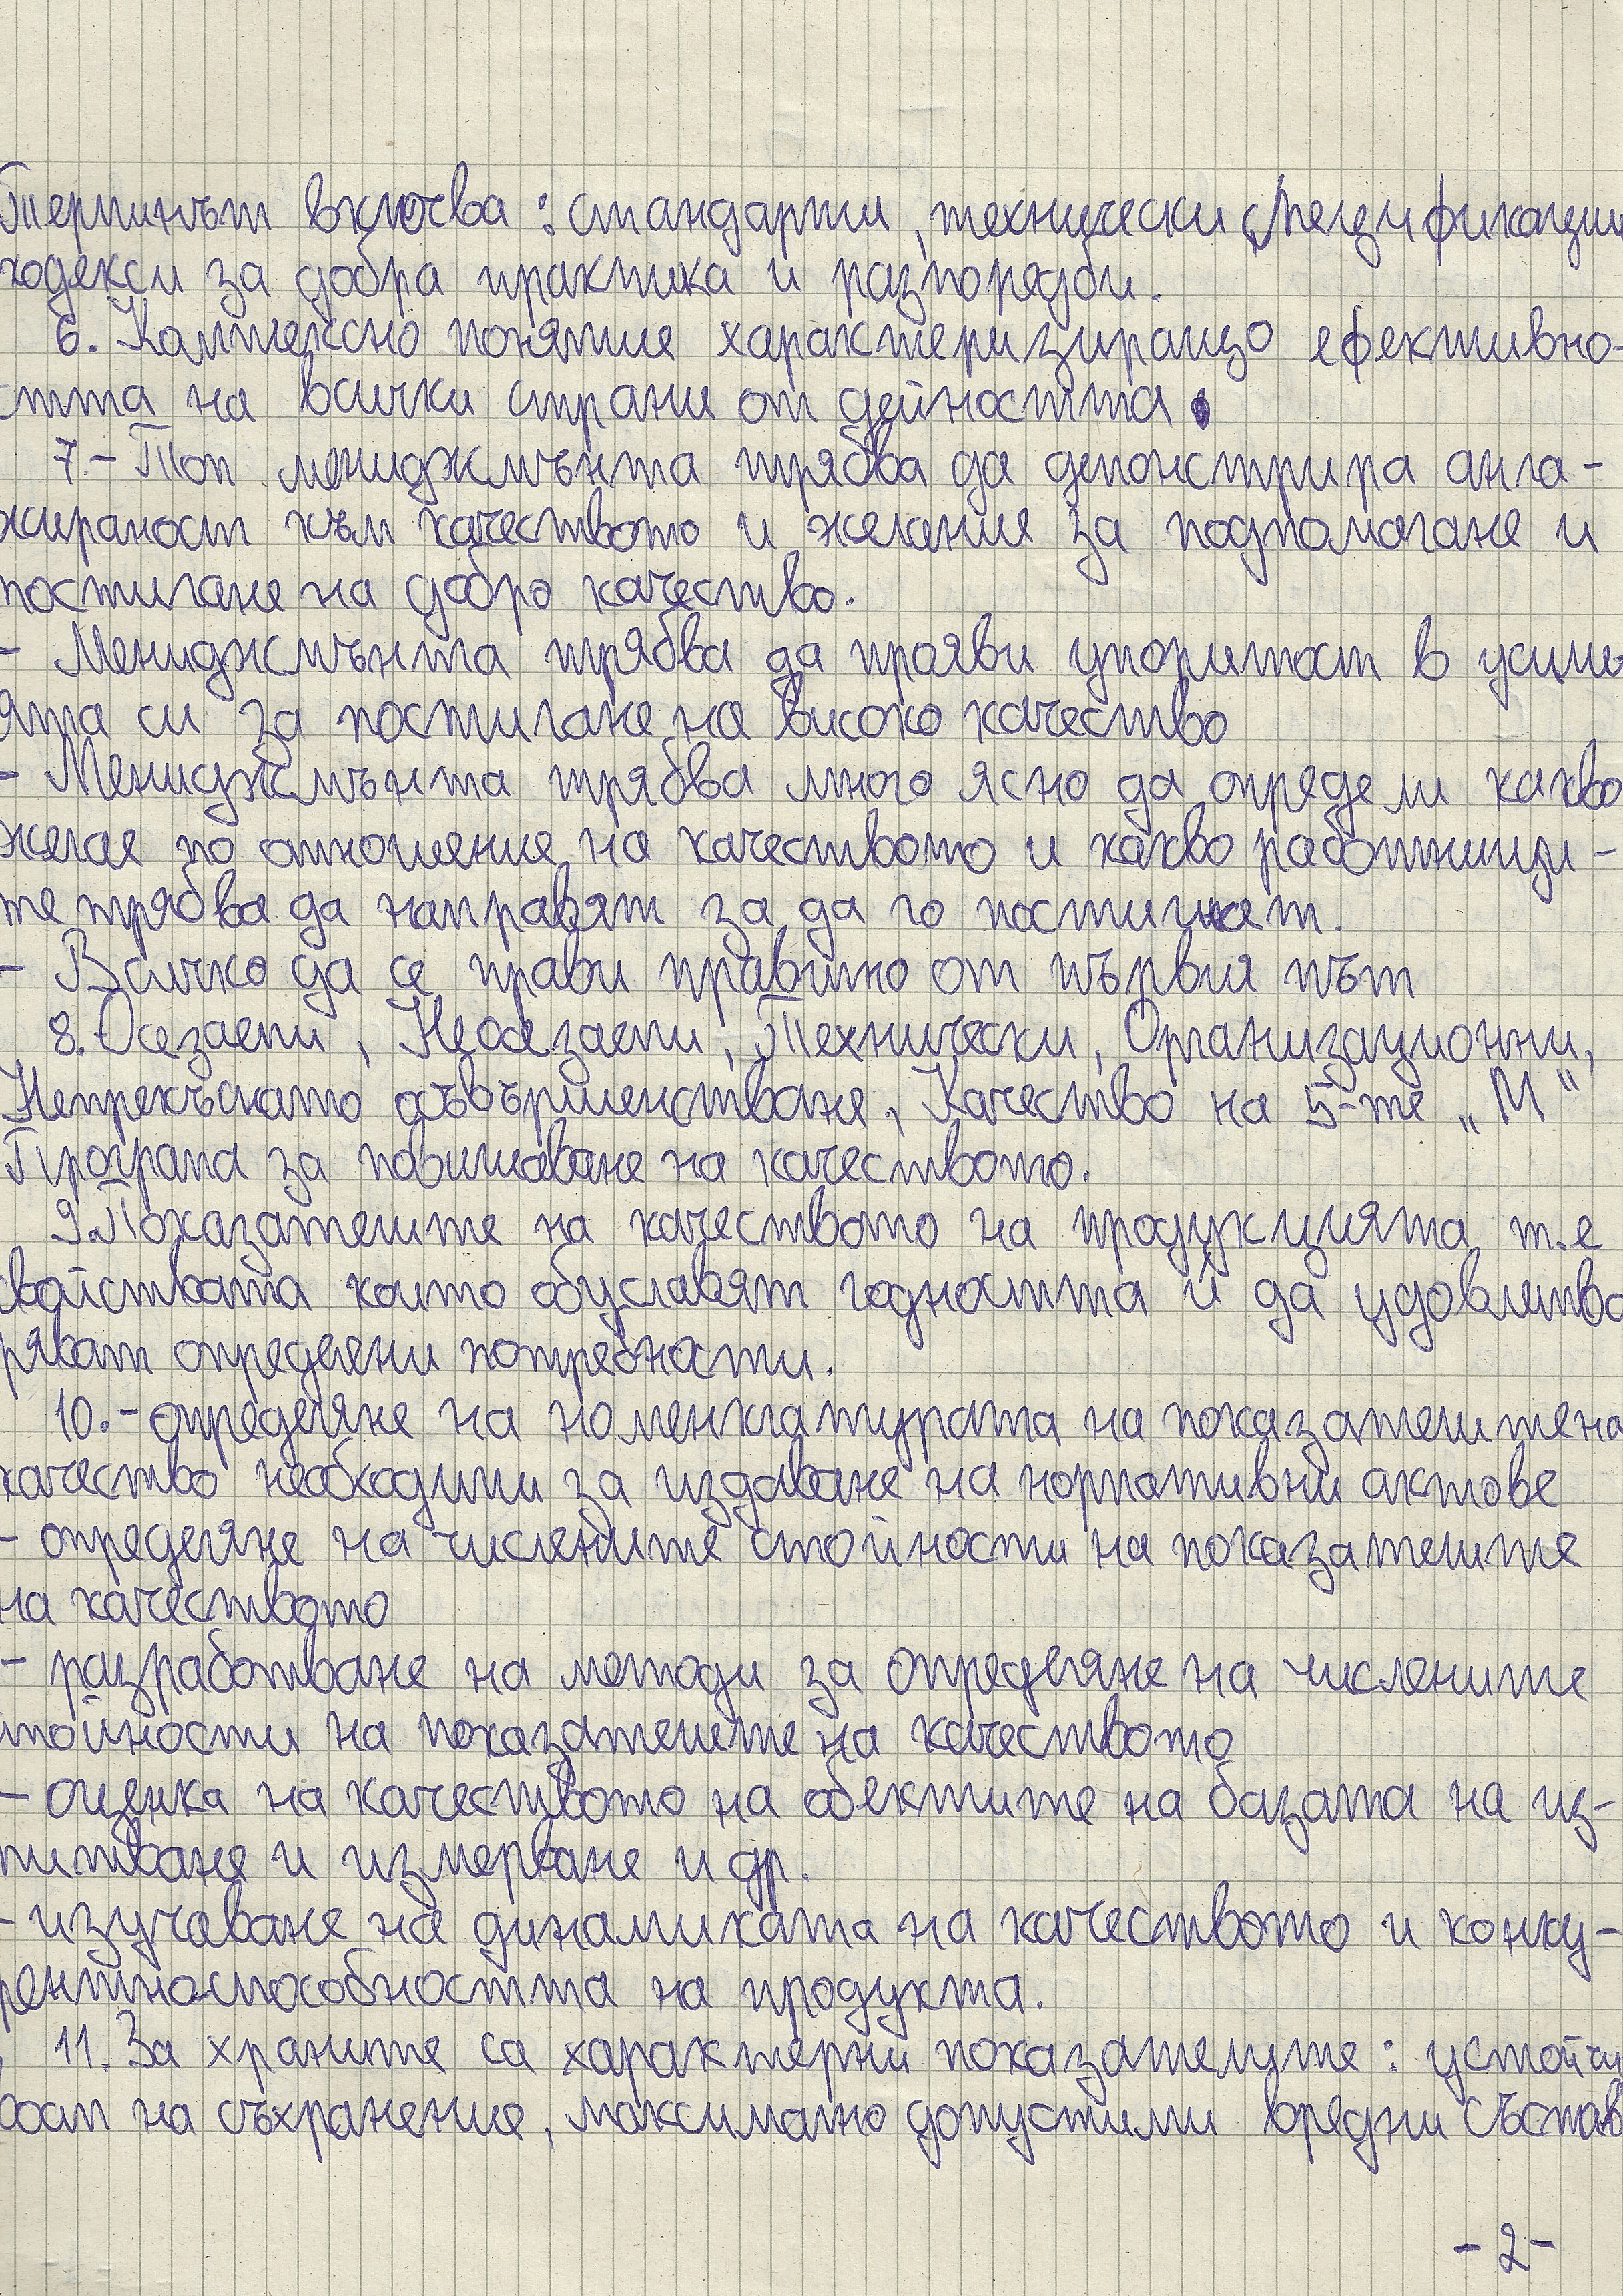 Терминът включва: стандарти, технически спецификации
кодекси за добра практика и разпоредби.
6. Комплексно понятие характеризиращо ефективно-
стта на всички страни от дейността.
7. - Топ мениджмънта трябва да демонстрира анга-
жираност към качеството и желание за подпомагане и
постигане на добро качество.
- Мениджмънта трябва да прояви упоритост в усили
ята си за постигане на високо качество
- Мениджмънта трябва много ясно да определи какво
желае по отношение на качеството и какво работници-
те трябва да направят за да го постигнат.
- Всичко да се прави правилно от първия път
8. Осезаеми, Неосезаеми, Технически, Организационни,
Непрекъснато усъвършенстване, Качество на 5-те „М“
Програма за повишаване на качеството.
9. Показателите на качеството на продукцията т.е
свойствата които обуславят годността й да удовлетво
ряват определени потребности.
10. - определяне на номенклатурата на показателите на
качество необходими за издаване на нормативни актове
- определяне на числените стойности на показателите
на качеството
- разработване на методи за определяне на числените
стойности на показателите на качеството
- оценка на качеството на обектите на базата на из-
питване и измерване и др.
- изучаване на динамиката на качеството и конку-
рентноспособността на продукта.
11. За храните са характерни показателите: устойчи
вост на съхранение, максимално допустими вредни състав
- 2 -